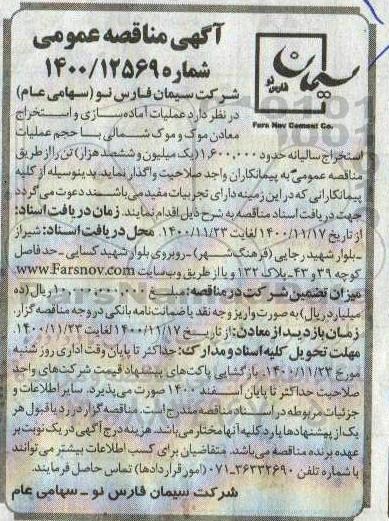 آگهی مناقصه عمومی
شماره ۱۴۰۰/۱۲۵۶۹
شرکت سیمان فارس نو (سهامی عام)
سیمان
فارس نو
Fars Nov Cement Co.
در نظر دارد عملیات آماده‌سازی و استخراج
معادن موک و موک شمالی با حجم عملیات
استخراج سالیانه حدود ۱,۶۰۰,۰۰۰ (یک میلیون و ششصد هزار) تن را از طریق
مناقصه عمومی به پیمانکاران واجد صلاحیت واگذار نماید. بدینوسیله از کلیه
پیمانکارانی که در این زمینه دارای تجربیات مفید می‌باشند دعوت می‌گردد
جهت دریافت اسناد مناقصه به شرح ذیل اقدام نمایند. زمان دریافت اسناد:
از تاریخ ۱۴۰۰/۱۱/۱۷ لغایت ۱۴۰۰/۱۱/۲۳. محل دریافت اسناد: شیراز
-بلوار شهید رجایی (فرهنگ شهر) -روبروی بلوار شهید کسایی -حدفاصل
کوچه ۳۹ و ۴۳-پلاک ۱۳۲ و یا از طریق وب‌سایت www.Farsnov.com
میزان تضمین شرکت در مناقصه: مبلغ ۱۰,۰۰۰,۰۰۰,۰۰۰ ریال (ده
میلیارد ریال) به صورت واریز وجه نقد یا ضمانت‌نامه بانکی در وجه مناقصه گزار.
زمان بازدید از معادن: از تاریخ ۱۴۰۰/۱۱/۱۷ لغایت ۱۴۰۰/۱۱/۲۳.
مهلت تحویل کلیه اسناد و مدارک: حداکثر تا پایان وقت اداری روز شنبه
مورخ ۱۴۰۰/۱۱/۲۳. بازگشایی پاکت‌های پیشنهاد قیمت شرکت‌های واجد
صلاحیت حداکثر تا پایان اسفند ۱۴۰۰ صورت می‌پذیرد. سایر اطلاعات و
جزئیات مربوطه در اسناد مناقصه مندرج است. مناقصه گزار در رد یا قبول هر
یک از پیشنهادها یا رد کلیه آنها مختار می‌باشد. هزینه درج آگهی در یک نوبت بر
عهده برنده مناقصه می‌باشد. متقاضیان برای کسب اطلاعات بیشتر می‌توانند
با شماره تلفن ۳۶۳۳۲۶۹۰-۰۷۱ (امور قراردادها) تماس حاصل فرمایند.
شرکت سیمان فارس نو - سهامی عام